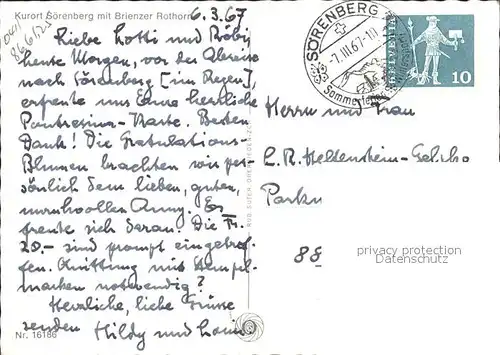 Kurort Sörenberg mit Brienzer Rothorn
6.3.67
Liebe Lotti und Robi,
heute Morgen, vor der Abreise
nach Sörenberg [im Regen],
erfreute uns Eure herrliche
Pontresina-Karte. Besten
Dank! Die Gratulations-
Blumen brachten wir per-
sönlich dem lieben, guten,
humorvollen Anny. Es
freute sich daran. Die Fr.
20.- sind prompt eingetrof-
fen. Quittung mit Stempel-
marken notwendig?
Herzliche, liebe Grüsse
senden Hildy und
Nr. 16186
SÖRENBERG
-7.III.67-10
HELVETIA
10
Herrn und Frau
Parku
88
privacy protection
Datenschutz